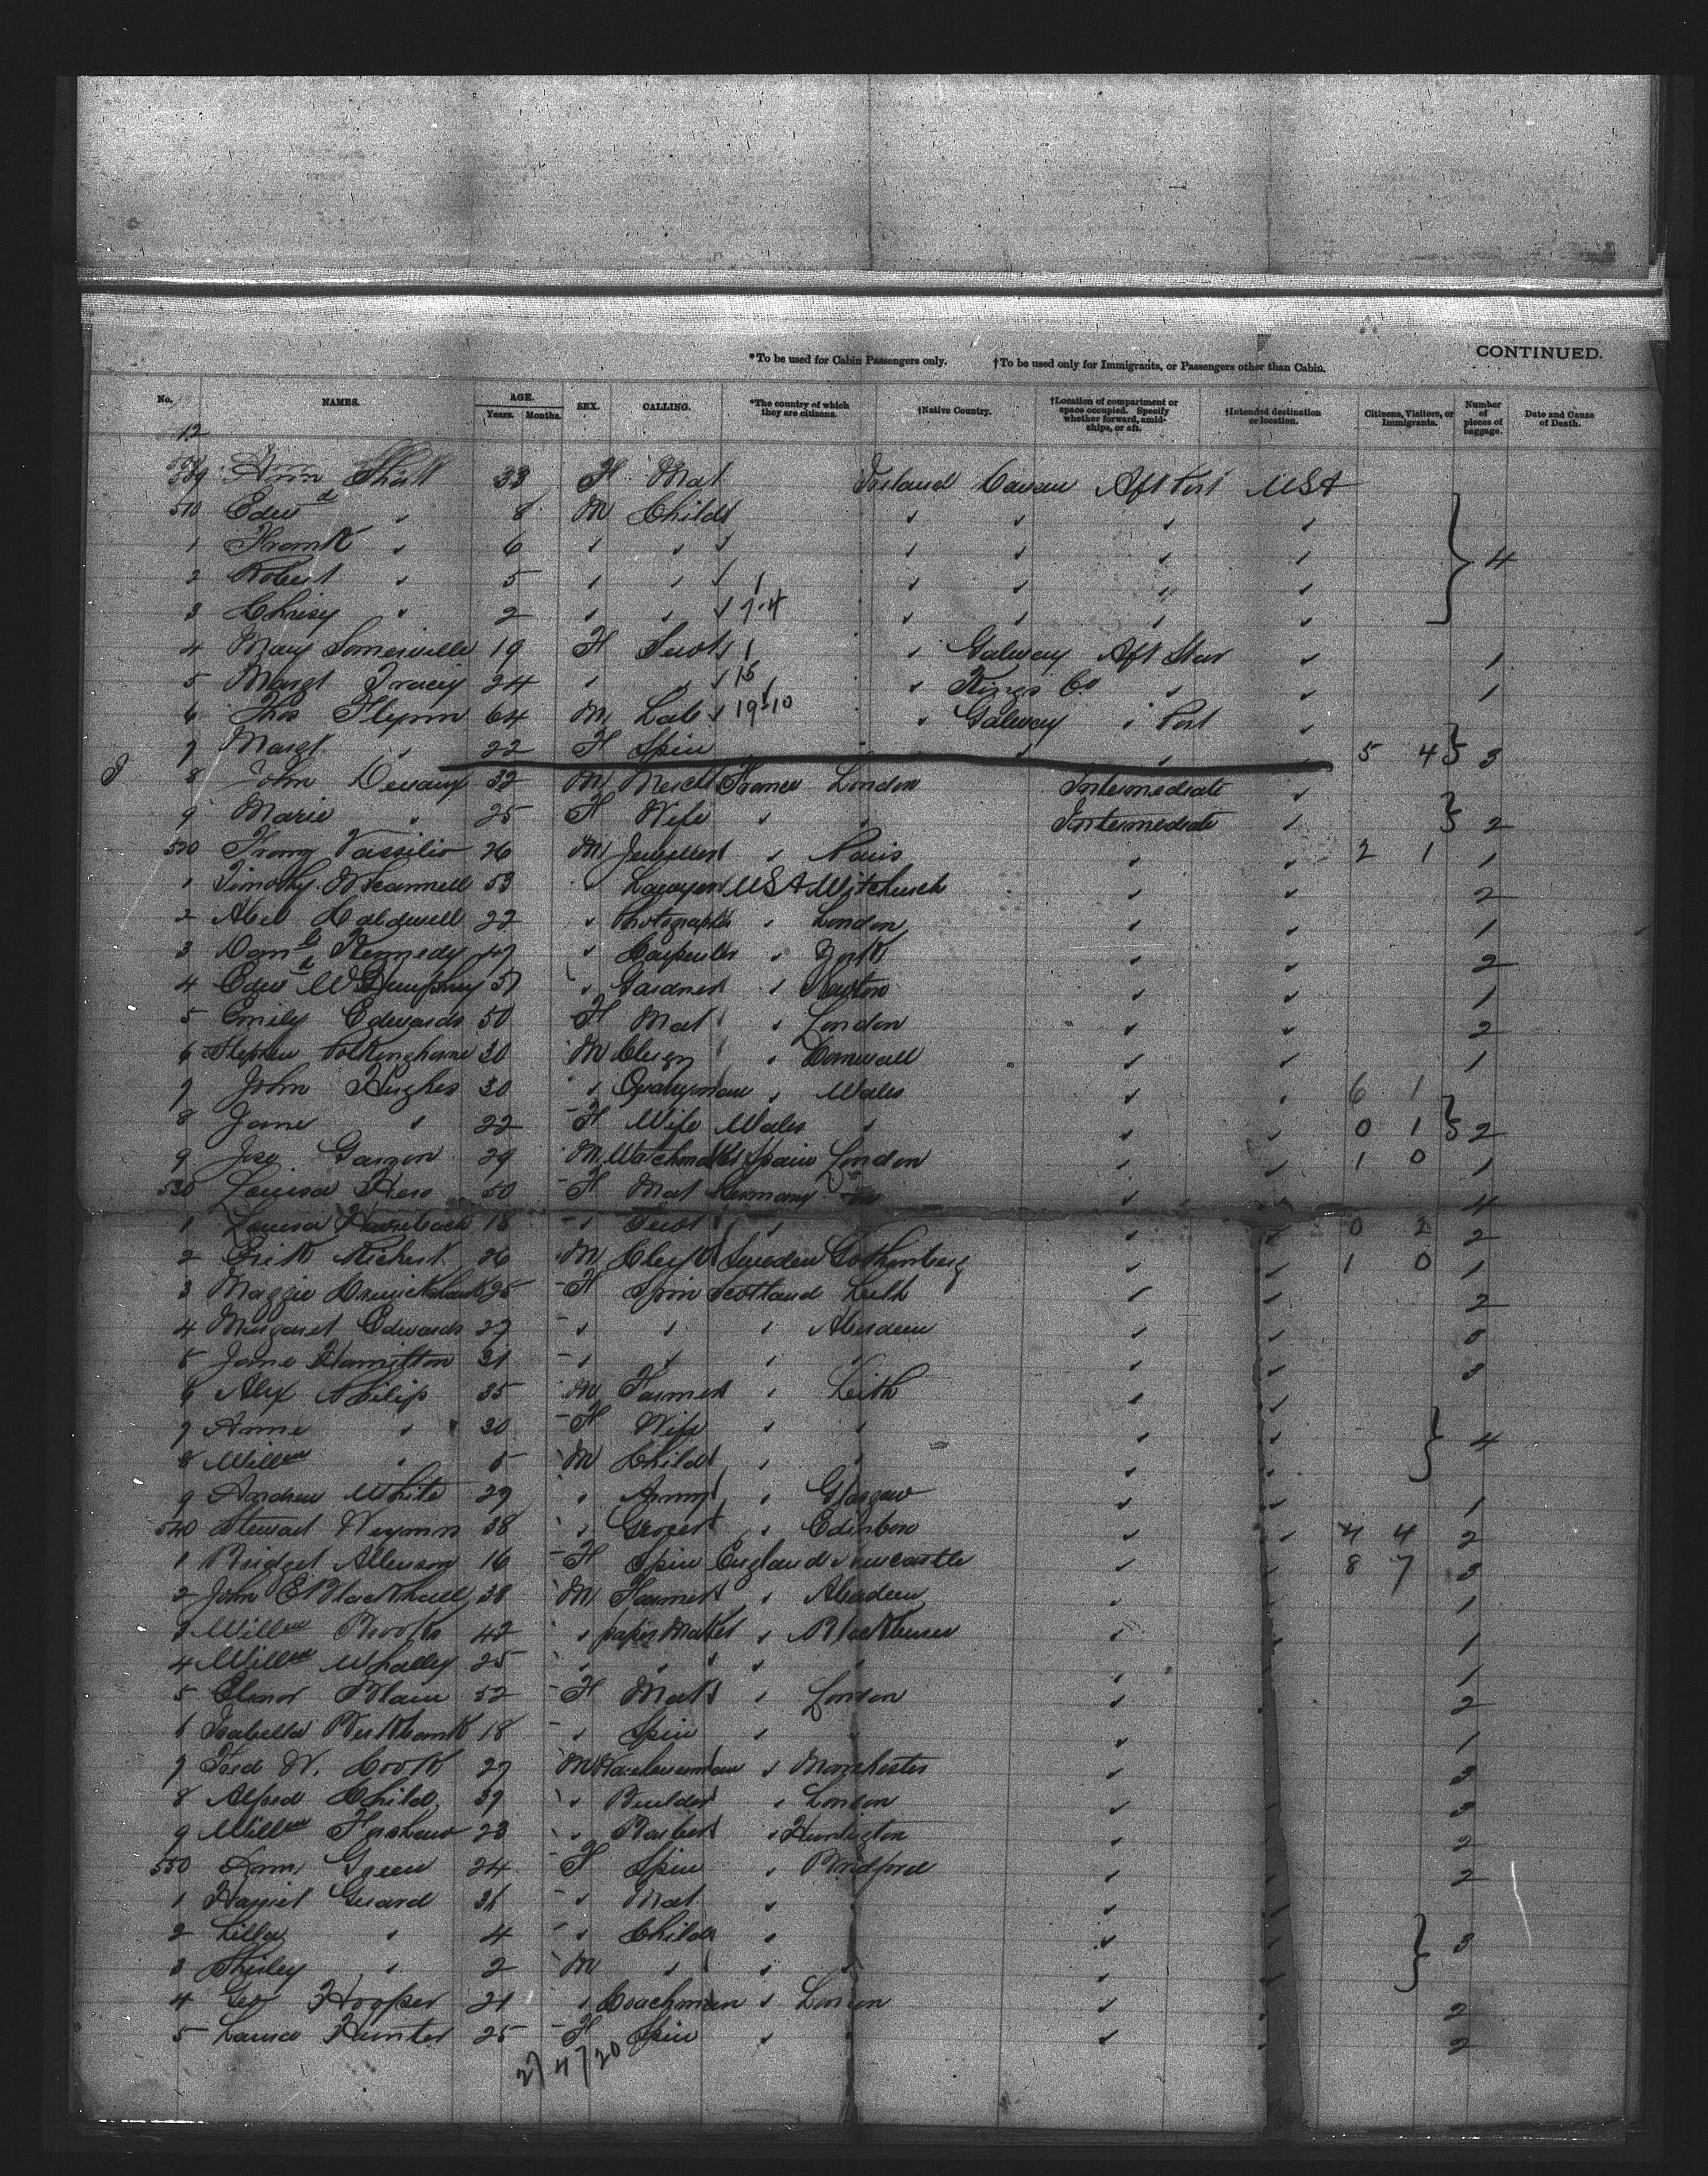 CONTINUED.
*To be used for Cabin Passengers only. †To be used only for Immigrants, or Passengers other than Cabin.
No. NAMES. AGE. Years. Months. SEX. CALLING. *The country of which they are citizens. †Native Country. †Location of compartment or space occupied. Specify whether forward, amidships, or aft. †Intended destination or location. Citizens, Visitors, or Immigrants. Number of pieces of baggage. Date and Cause of Death.
12
509 Ann 33 F Mat Ireland Cavan Aft Port USA
510 Edwd " 8 M Child " " " "
1 Frank " 6 " " " " " "
2 Robert " 5 " " " " " " 4
3 Chrisy " 2 " " 7-4 " " " "
4 Mary Somerville 19 F Servt " Galway Aft Star " 1
5 Margt Tracey 24 " " 15 " Kings Co " " 1
6 Thos Flynn 64 M Lab 19-10 " Galway " Port "
7 Margt " 22 F Spin " " " 5 4 3
8 John Devaux 32 M Mercht France London Intermediate "
9 Marie " 25 F Wife " " Intermediate " 2
520 Vassilio 26 M Jeweller " Paris " " 2 1 1
1 Timothy 53 " Lawyer USA " " 2
2 Caldwell 22 " Photograph " London " " 1
3 Kennedy 47 " Carpenter " York " " 2
4 Edwd W Humphrey " Gardner " " " 1
5 Emily Edwards 50 F Mat " London " " 2
6 Stephen Polkinghorne 30 M Clergn " Cornwall " " 1
7 John Hughes 30 " Quarryman " Wales " " 6 1
8 Jane " 22 F Wife Wales " " " 0 1 2
9 Jose Garzon 29 M Watchmaker Spain London " " 1 0 1
530 Louisa Hess 50 F Mat Germany Do " " 4
1 Louisa 18 " Servt " " " " 0 2 2
2 Erik 26 M Clerk Sweden Gothenberg " " 1 0 1
3 Maggie 25 F Spin Scotland Leith " " 2
4 Margaret Edwards 27 " " " Aberdeen " "
5 Jane Hamilton 31 " " " " " " 3
6 Alex Philip 35 M Farmer " Leith " "
7 Anne " 30 F Wife " " " " 4
8 Willm " 5 M Child " " " "
9 Andrew White 29 " Army " Glasgow " " 1
540 Stewart Weymss 38 " Grocer " Edinboro " " 4 4 2
1 Bridget Allenson 16 F Spin England Newcastle " " 8 7 3
2 John E Blackhall 38 M Farmer " Aberdeen " " 1
3 Willm Brooks 42 " paper Maker " " " 1
4 Willm Whalley 25 " " " " " " 1
5 Elinor 52 F Mat " London " " 2
6 Isabella Birkbank 18 " Spin " " " 1
7 Fred W. Cook 27 M Warehouseman " Manchester 3
8 Alfred Child 39 " Builder " London " " 3
9 Willm 23 " Barber " " " 2
550 Green 24 F Spin " Bradford " " 2
1 Harriet Guard " Mat " " "
2 Lilla " 4 " Child " " " 3
3 Shirley " 2 M " " " " "
4 Geo Hooper 21 " Coachman " London " " 2
5 Hunter 25 F Spin " " " 2
27/4/20